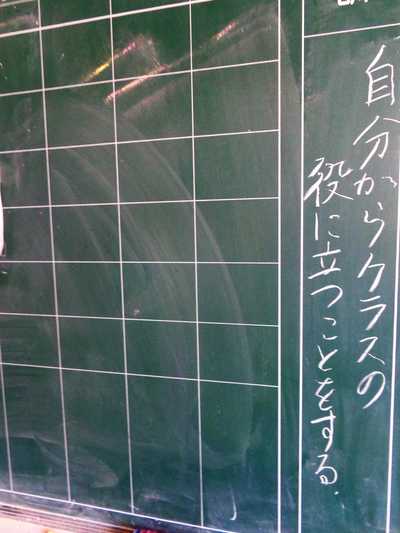 自分からクラスの
役に立つことをする.